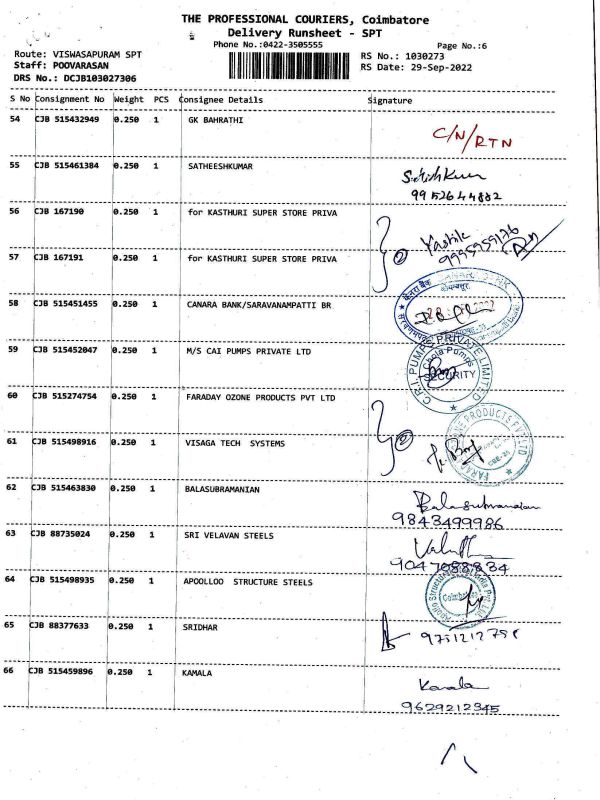 THE PROFESSIONAL COURIERS, Coimbatore
Delivery Runsheet - SPT
Phone No.:0422-3505555 Page No.:6
Route: VISWASAPURAM SPT RS No.: 1030273
Staff: POOVARASAN RS Date: 29-Sep-2022
DRS No.: DCJB103027306
S No Consignment No Weight PCS Consignee Details Signature
54 CJB 515432949 0.250 1 GK BAHRATHI
C/N/RTN
55 CJB 515461384 0.250 1 SATHEESHKUMAR
9952644882
56 CJB 167190 0.250 1 for KASTHURI SUPER STORE PRIVA
2
57 CJB 167191 0.250 1 for KASTHURI SUPER STORE PRIVA
58 CJB 515451455 0.250 1 CANARA BANK/SARAVANAMPATTI BR
केनरा बैंक
59 CJB 515452047 0.250 1 M/S CAI PUMPS PRIVATE LTD
C.R.I. PUMPS PRIVATE LIMITED
Chola Pumps
SECURITY
60 CJB 515274754 0.250 1 FARADAY OZONE PRODUCTS PVT LTD
2
61 CJB 515498916 0.250 1 VISAGA TECH SYSTEMS
62 CJB 515463830 0.250 1 BALASUBRAMANIAN
Balasubramanian
9843499986
63 CJB 88735024 0.250 1 SRI VELAVAN STEELS
9047088834
64 CJB 515498935 0.250 1 APOOLLOO STRUCTURE STEELS
65 CJB 88377633 0.250 1 SRIDHAR
66 CJB 515459896 0.250 1 KAMALA
Kamala
9629212345